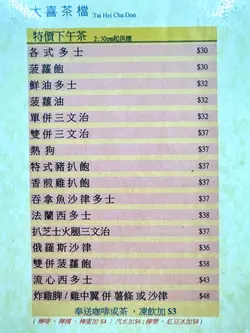 大喜茶檔 Tai Hei Cha Don
特價下午茶 2:30pm起供應
各式多士 $30
菠蘿飽 $30
鮮油多士 $32
菠蘿油 $32
單併三文治 $32
雙併三文治 $37
熱狗 $37
特式豬扒飽 $37
香煎雞扒飽 $37
吞拿魚沙律多士 $37
法蘭西多士 $38
扒芝士火腿三文治 $37
俄羅斯沙律 $36
雙併菠蘿飽 $37
流心西多士 $43
炸雞脾/雞中翼併薯條或沙律 $48
奉送咖啡或茶，凍飲加 $3